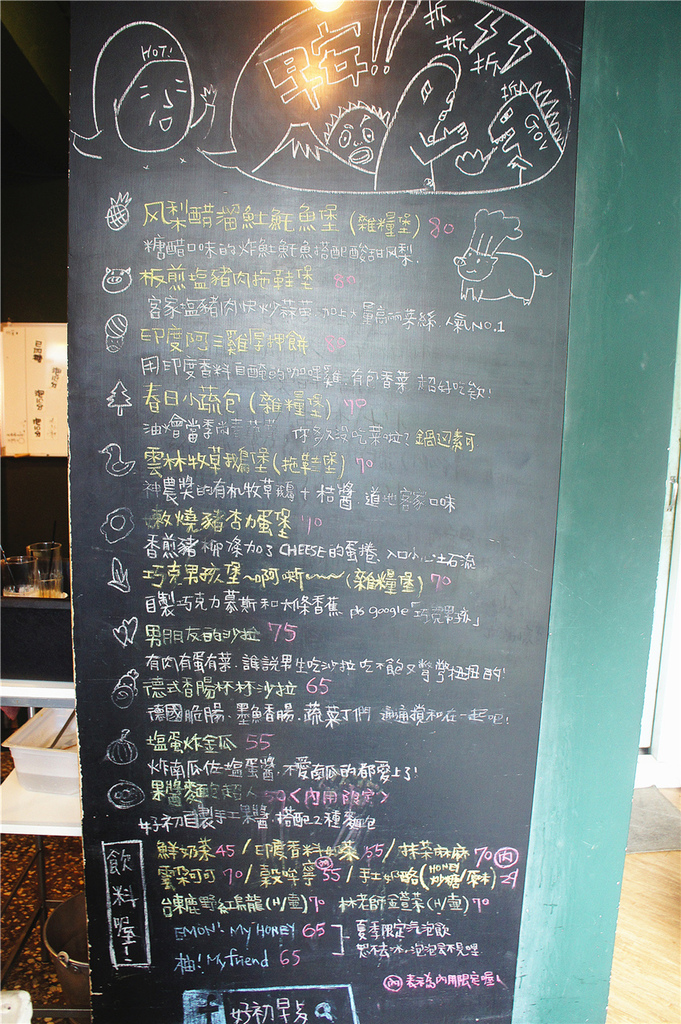 HOT!
早安!!
拆
拆
拆
拆
Gov
风梨醋溜魠魠魚堡(雜糧堡) 80
糖醋口味的炸魠魠魚搭配酸甜风梨.
板煎塩豬肉拖鞋堡 80
客家塩豬肉快炒蒜苗 加上大量高麗菜絲.人氣NO.1
印度阿三雞掌押餅 80
用印度香料自醃的咖哩雞.有包香菜 超好吃欸!
春日小蔬包(雜糧堡) 70
油燴當季尚青 你多久沒吃菜啦?鍋边素可
雲林牧草鵝堡(拖鞋堡) 70
神農獎的有机牧草鵝+桔醬 道地客家口味
嫩燒豬杏力蛋堡 70
香煎豬柳條加了CHEESE的蛋捲 入口小心土石流
巧克男孩堡~啊嘶~~(雜糧堡) 70
自製巧克力慕斯和大條香蕉 ps google「巧克男孩」
男朋友的沙拉 75
有肉有蛋有菜.誰說男生吃沙拉吃不飽又彆彆扭扭的!
德式香腸杯杯沙拉 65
德國脆腸.墨魚香腸.蔬菜丁們 通通攪和在一起吧!
塩蛋炸金瓜 55
炸南瓜佐塩蛋醬.不愛南瓜的都愛上了!
果醬麵包超人 50<內用限定>
好初自製手工果醬.搭配2種麵包
飲料喔!
鮮奶茶45/印度香料奶茶55/抹茶麻麻70 內
雲朵可可70/穀哞寧55/手工奶酪(HONEY/炒糖/原味)
內
台東鹿野紅烏龍(H/壺)70 林老師 萱茶(H/壺)70
EMON! My HONEY 65
夏季限定汽泡飲
柚! My friend 65
要去冰.泡泡會不見哩
內 表示為內用限定喔!
好初早歺